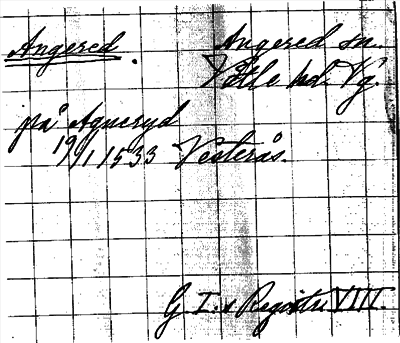 Angered. Angered sn.
Vätle hd. Vg.
på Agneryd
19/1 1533 Vesterås.
G. I:s Registr. VIII.